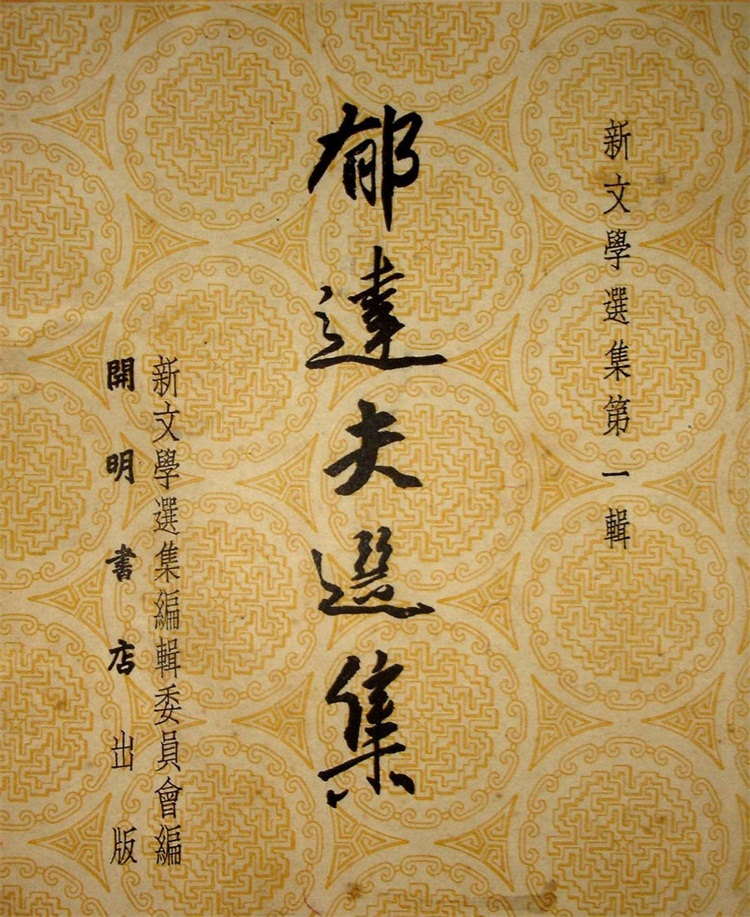 新文學選集第一輯
郁達夫選集
新文學選集編輯委員會編
開明書店出版